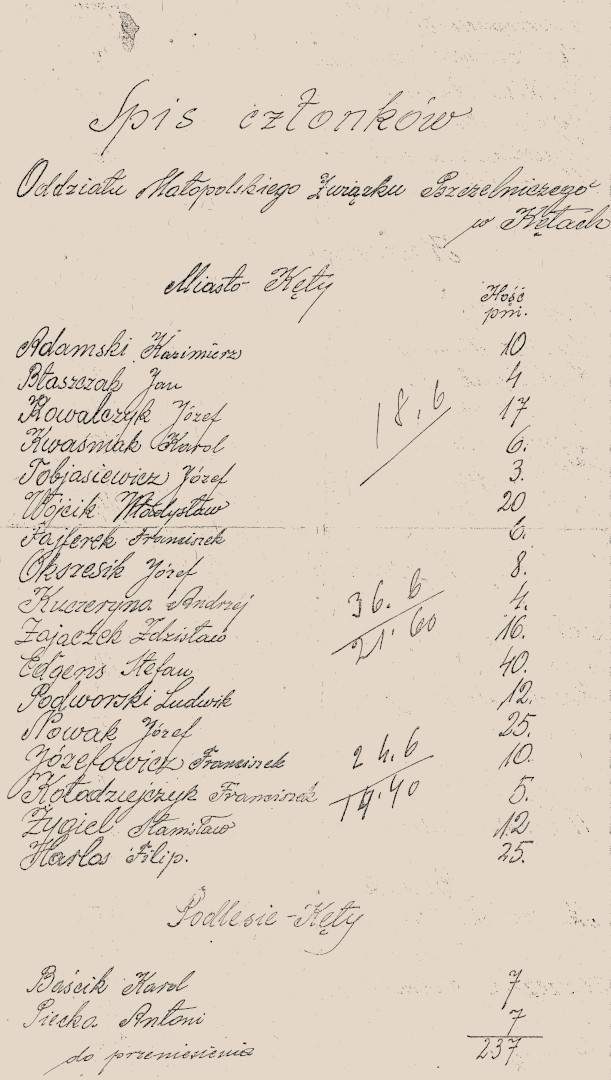 Spis członków
Oddziału Małopolskiego Związku Pszczelniczego
w Kętach
Miasto Kęty
Ilość
pni.
Adamski Kazimierz 10
Błaszczak Jan 4
Kowalczyk Józef 17
18.6
Kwaśniak Karol 6.
Tobjasiewicz Józef 3.
Wójcik Władysław 20
Fajferek Franciszek 6.
Okrzesik Józef 8.
Kuczeryna Andrzej 4.
36.6
Zajączek Zdzisław 16.
21.60
Edgens Stefan 40.
Podworski Ludwik 12.
Nowak Józef 25.
Józefowicz Franciszek 10.
24.6
Kołodziejczyk Franciszek 5.
14.40
Zygiel Stanisław 12.
Harlos Filip. 25.
Podlesie - Kęty
Baścik Karol 7
Piecka Antoni 7
do przeniesienia 237